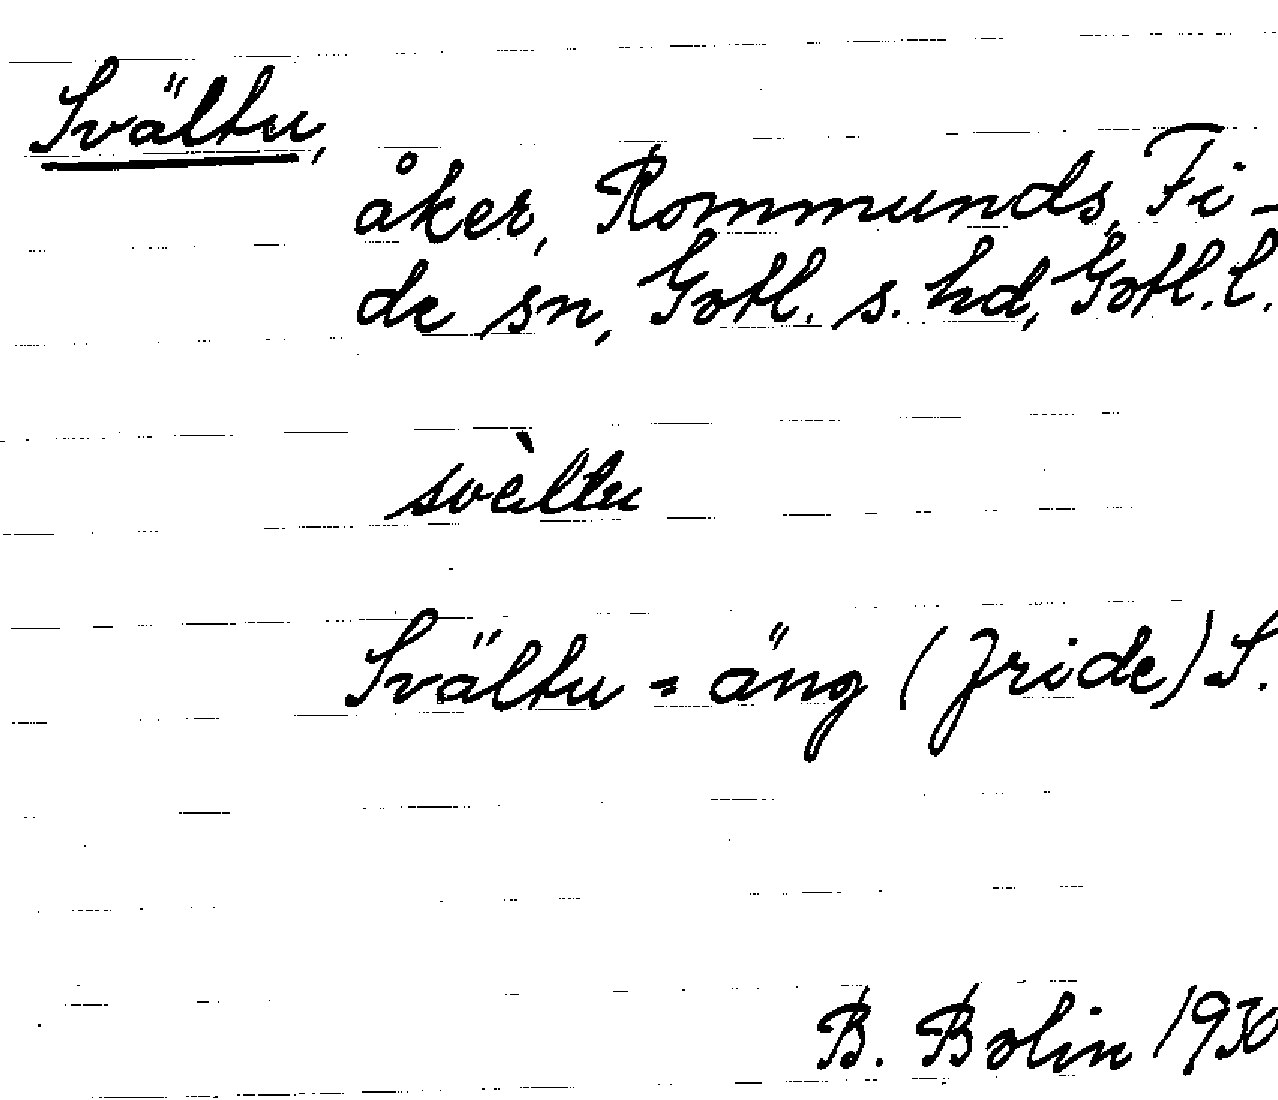 Svältu,
åker, Rommunds, Fi-
de sn, Gotl. s. hd, Gotl. l.
svèltu
Svältu = äng (Jride) S.
B. Bolin 1930